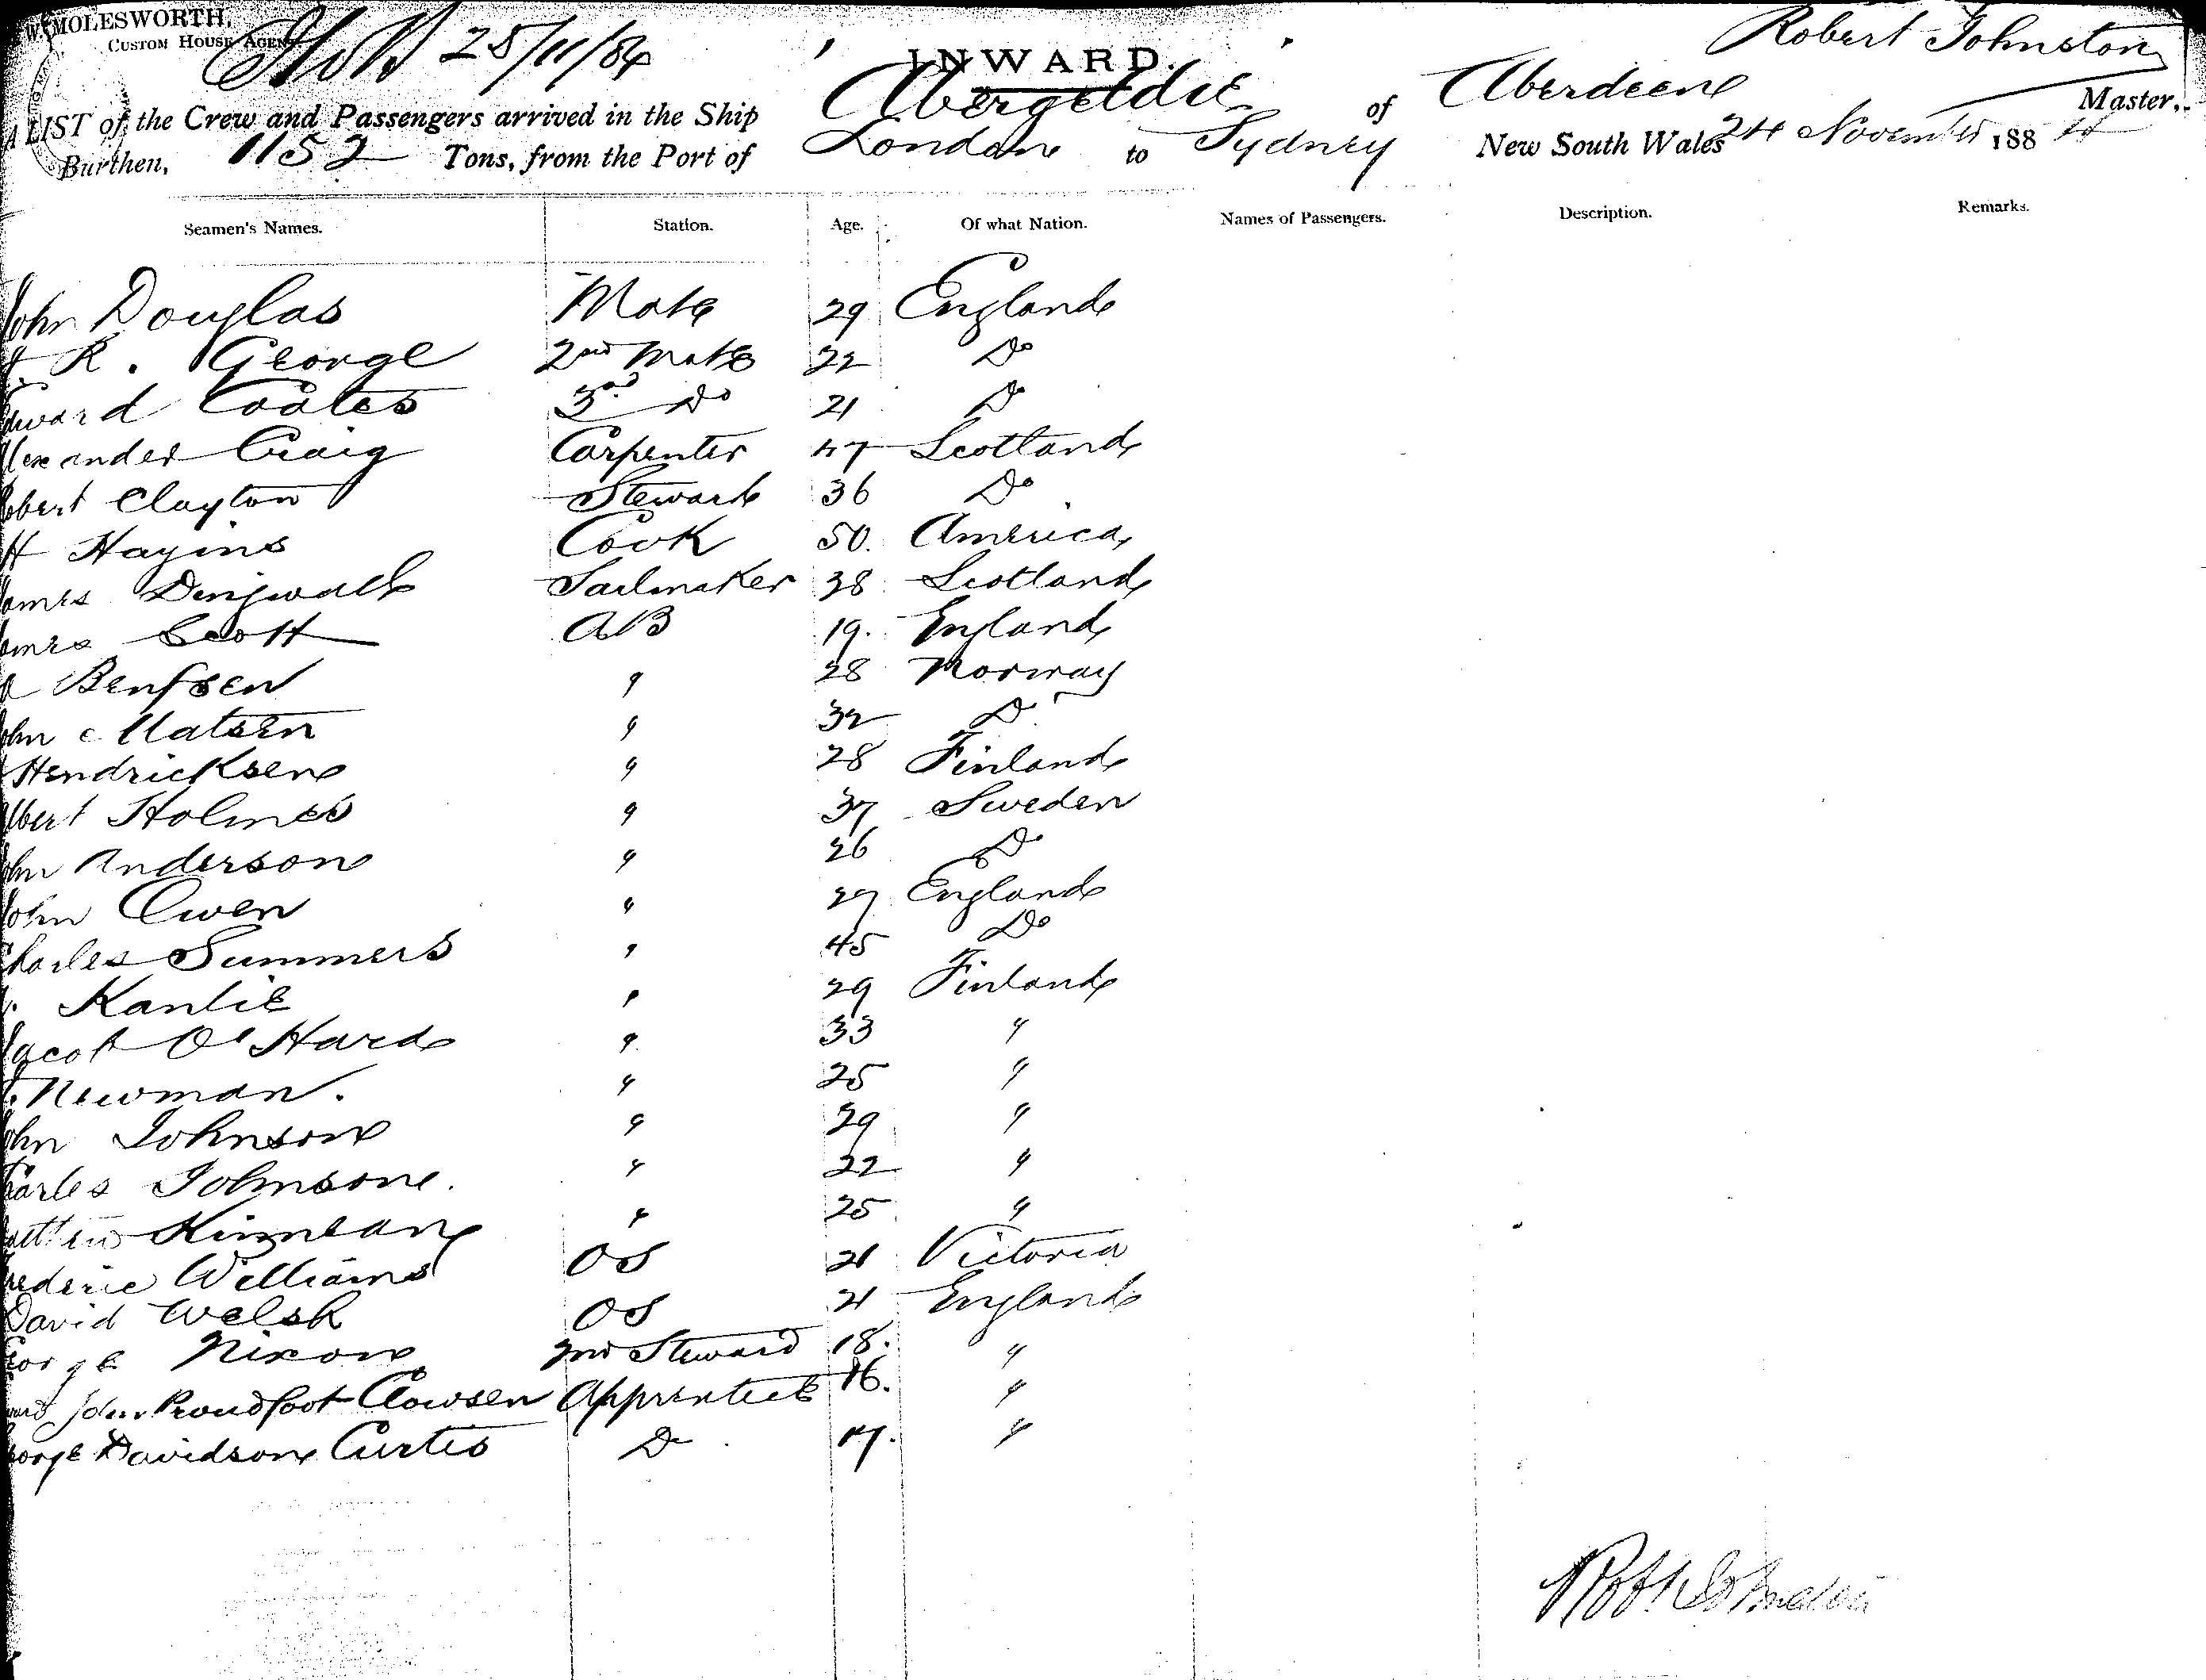 MOLESWORTH,
CUSTOM HOUSE AGENT
25/11/84
INWARD.
Robert Johnston
A LIST of the Crew and Passengers arrived in the Ship Abergeldie of Aberdeen Master,
Burthen, 1152 Tons, from the Port of London to Sydney New South Wales 24 November 1884
Seamen's Names. Station. Age. Of what Nation. Names of Passengers. Description. Remarks.
John Douglas Mate 29 England
R. George 2nd Mate 22 Do
Edward Coates 3rd Do 21 Do
Alexander Craig Carpenter 47 Scotland
Robert Clayton Steward 36 Do
H Hayins Cook 50. America
James Dingwall Sailmaker 38 Scotland
James Scott AB 19. England
Bentsen " 28 Norway
John Matsen " 32 Do
Hendricksen " 28 Finland
Albert Holmes " 37 Sweden
John Anderson " 26 Do
John Owen " 27 England
Charles Summers " 45 Do
Kanlie " 29 Finland
Jacob O'Hard " 33 "
Newman. " 25 "
John Johnson " 29 "
Charles Johnson. " 22 "
Matthew Kinnean " 25 "
Frederic Williams OS 21 Victoria
David Welsh OS 21 England
George Nixon 2nd Steward 18. "
John Proudfoot Clowsen Apprentice 16. "
George Davidson Curtis Do 17. "
Robt Johnston